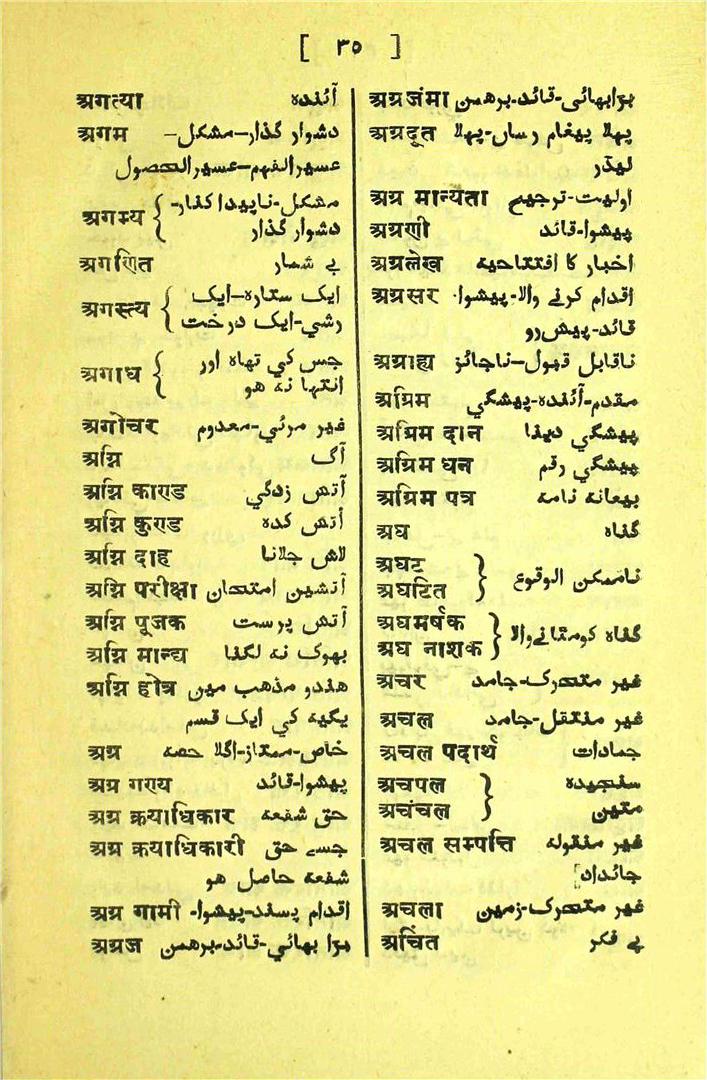 [ ۳۵ ]
अगत्या آئندہ
अगम دشوار گذار—مشکل—
عسیرالفہم—عسیرالحصول
अगम्य { مشکل-ناپیدا کنار-
دشوار گذار
अगणित بے شمار
अगस्त्य { ایک ستارہ—ایک
رشی-ایک درخت
अगाध { جس کی تھاہ اور
انتہا نہ ہو
अगोचर غیر مرئی-معدوم
अग्नि آگ
अग्नि काण्ड آتش زدگی
अग्नि कुण्ड أتش کدہ
अग्नि दाह لاش جلانا
अग्नि परीक्षा آتشین امتحان
अग्नि पूजक آتش پرست
अग्नि मान्द्य بھوک نہ لگنا
अग्नि होत्र ھندو مذھب میں
یگیہ کی ایک قسم
अग्र خاص-ممتاز-اگلا حصہ
अग्र गण्य پیشوا-قائد
अग्र क्रयाधिकार حق شفعہ
अग्र क्रयाधिकारी جسے حق
شفعہ حاصل ہو
अग्र गामी اقدام پسند-پیشوا-
अग्रज بڑا بھائی-قائد-برھمن
अग्रजंमा بڑابھائی-قائد-برھمن
अग्रदूत پہلا پیغام رساں-پہلا
لیڈر
अग्र मान्यता اولیت-ترجیح
अग्रणी پیشوا-قائد
अग्रलेख اخبار کا افتتاحیہ
अग्रसर اقدام کرنے والا-پیشوا-
قائد-پیش رو
अग्राह्य ناقابل قبول—ناجائز
अग्रिम مقدم-آئندہ-پیشگی
अग्रिम दान پیشگی دینا
अग्रिम धन پیشگی رقم
अग्रिम पत्र بیعانہ نامہ
अघ گناہ
अघट
अघटित } ناممکن الوقوع
अघमर्षक
अघ नाशक } گناہ کومٹانےوالا
अचर غیر متحرک-جامد
अचल غیر منتقل-جامد
अचल पदार्थ جمادات
अचपल } سنجیدہ
अचंचल متین
अचल सम्पत्ति غیر منقولہ
جائداد
अचला غیر متحرک-زمین
अचिंत بے فکر